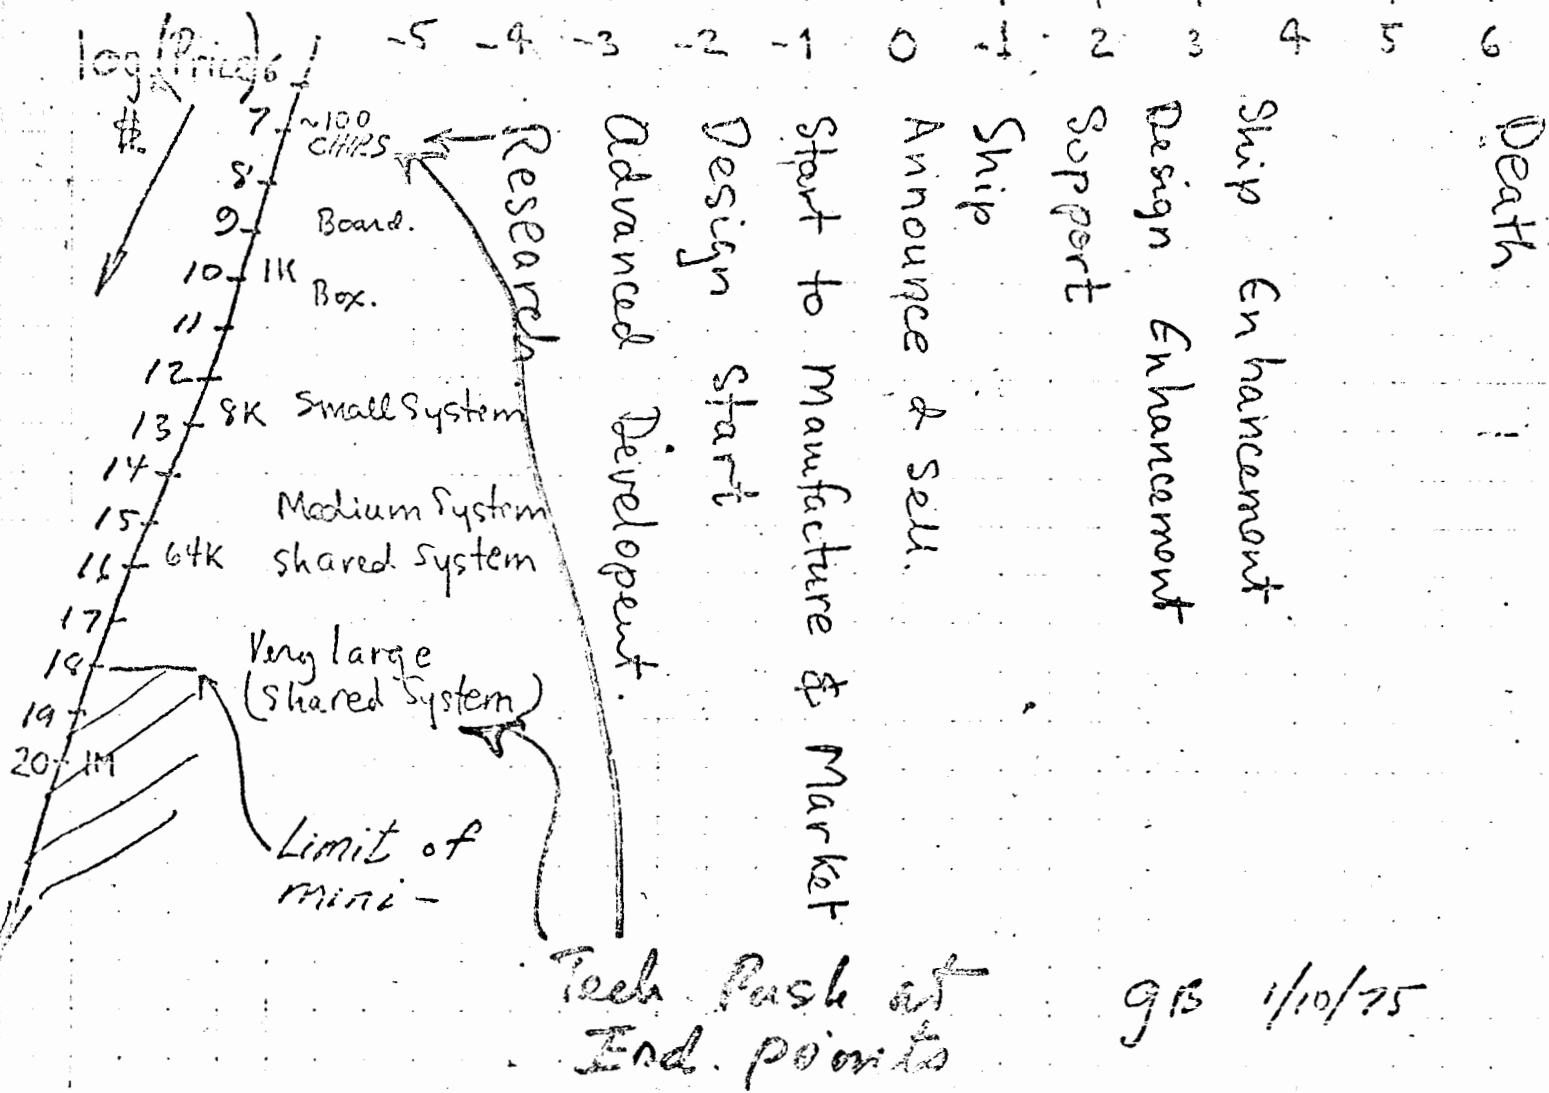 log (Price) 6 -5 -4 -3 -2 -1 0 -1 2 3 4 5 6
$.
7 ~100
CHIPS
8
9 Board.
10 1K
Box.
11
12
13 8K Small System
14
15 Medium System
16 64K Shared System
17
18 Very large
(Shared System)
19
20 1M
Limit of
mini -
Research
Advanced Developent.
Design Start
Start to Manufacture & Market
Announce & Sell.
Ship
Support
Design Enhancement
Ship Enhancement
Death
Tech Push at
End. points
GB 1/10/75